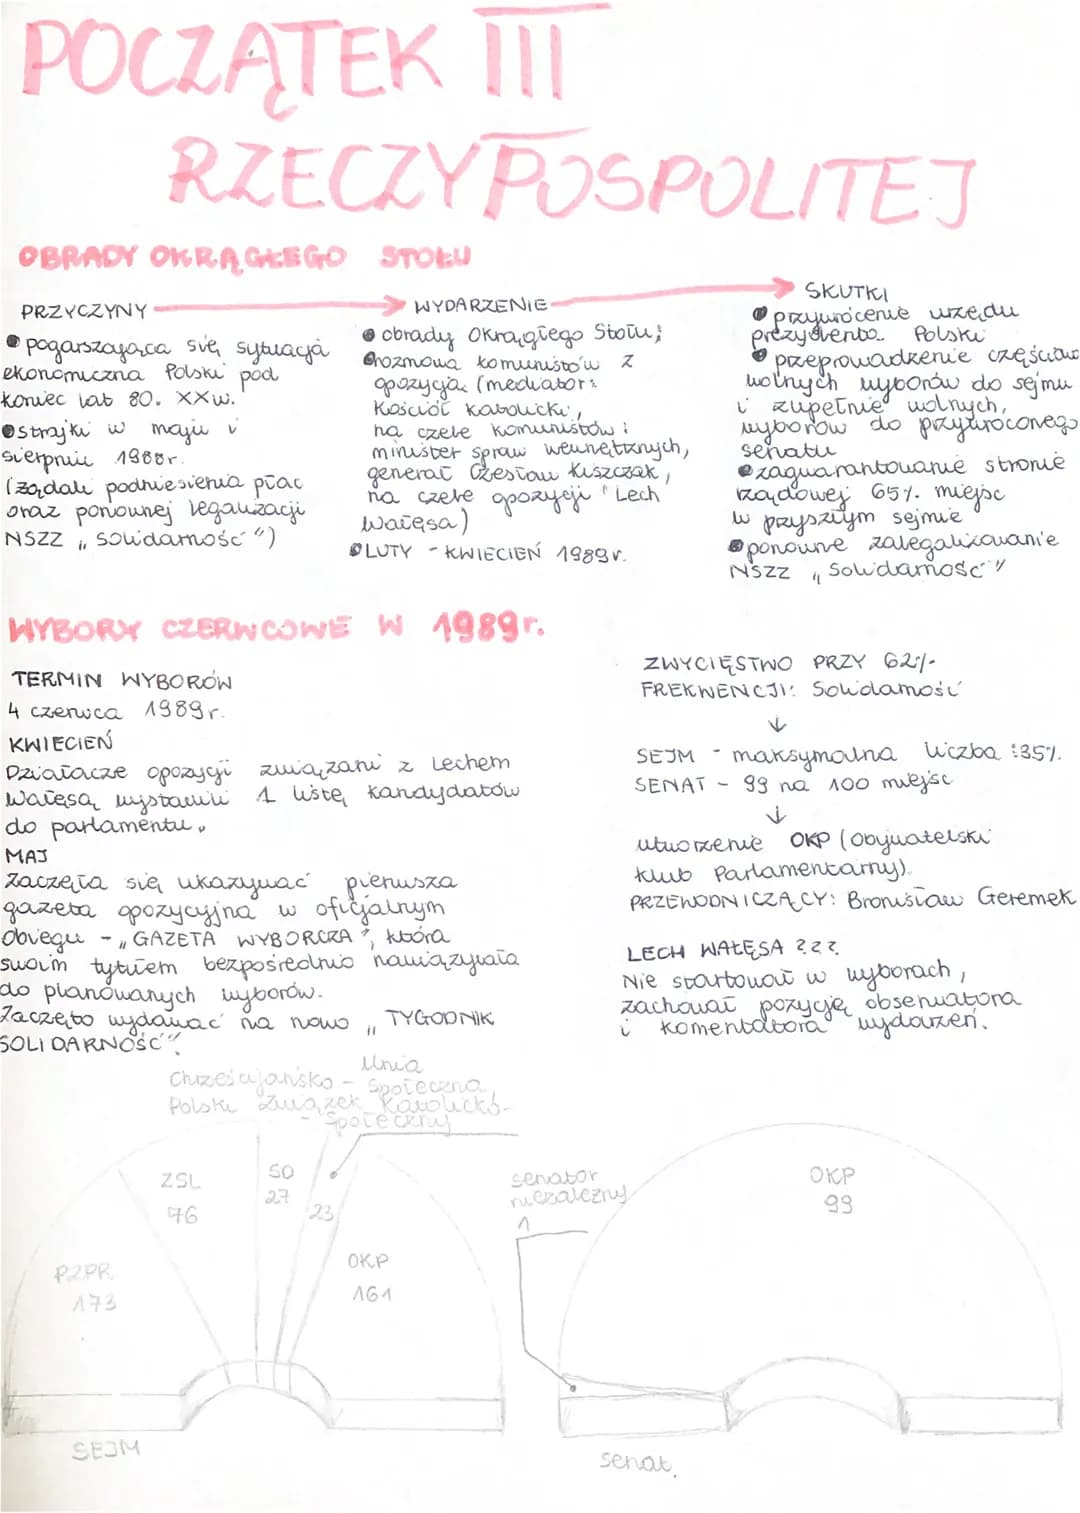 POCZĄTEK III
RZECZYPOSPOLITEJ
OBRADY OKRĄGŁEGO STOŁU
PRZYCZYNY
● pogarszająca się sytuacja
ekonomiczna Polski pod
koniec lat 80. XXw.
● strajki w maju i
sierpniu 1988r.
(żądali podniesienia płac
oraz ponownej legalizacji
NSZZ „Solidarność")
WYDARZENIE
● obrady Okrągłego Stołu;
● rozmowa komunistów z
opozycją (mediator:
Kościół katolicki,
na czele komunistów:
minister spraw wewnętrznych,
generał Czesław Kiszczak,
na czele opozycji: Lech
Wałęsa)
● LUTY - KWIECIEŃ 1989r.
SKUTKI
● przywrócenie urzędu
prezydenta Polski
● przeprowadzenie częściowo
wolnych wyborów do sejmu
i zupełnie wolnych,
wyborów do przywróconego
senatu
● zagwarantowanie stronie
rządowej 65% miejsc
w przyszłym sejmie
● ponowne zalegalizowanie
NSZZ „Solidarność"
WYBORY CZERWCOWE W 1989r.
TERMIN WYBORÓW
4 czerwca 1989r.
KWIECIEŃ
Działacze opozycji związani z Lechem
Wałęsą wystawili 1 listę kandydatów
do parlamentu.
MAJ
Zaczęła się ukazywać pierwsza
gazeta opozycyjna w oficjalnym
obiegu - „GAZETA WYBORCZA", która
swoim tytułem bezpośrednio nawiązywała
do planowanych wyborów.
Zaczęto wydawać na nowo „TYGODNIK
SOLIDARNOŚĆ".
ZWYCIĘSTWO PRZY 62%
FREKWENCJI: Solidarność
↓
SEJM - maksymalna liczba: 35%
SENAT - 99 na 100 miejsc
↓
utworzenie OKP (Obywatelski
Klub Parlamentarny).
PRZEWODNICZĄCY: Bronisław Geremek
LECH WAŁĘSA ???
Nie startował w wyborach,
zachował pozycję obserwatora
i komentatora wydarzeń.
Unia
Chrześcijańsko - Społeczna,
Polski Związek Katolicko-
- Społeczny
PZPR
173
ZSL
76
SD
27
23
OKP
161
SEJM
senator
niezależny
1
OKP
99
senat.